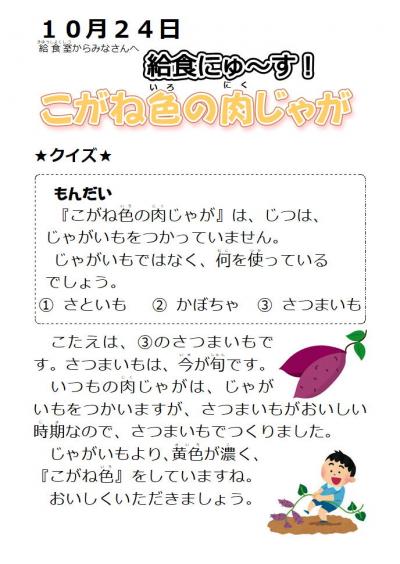 １０月２４日
給食室からみなさんへ
給食にゅ～す！
こがね色の肉じゃが
★クイズ★
もんだい
『こがね色の肉じゃが』は、じつは、
じゃがいもをつかっていません。
じゃがいもではなく、何を使っている
でしょう。
① さといも　② かぼちゃ　③ さつまいも
こたえは、③のさつまいもで
す。さつまいもは、今が旬です。
いつもの肉じゃがは、じゃが
いもをつかいますが、さつまいもがおいしい
時期なので、さつまいもでつくりました。
じゃがいもより、黄色が濃く、
『こがね色』をしていますね。
おいしくいただきましょう。